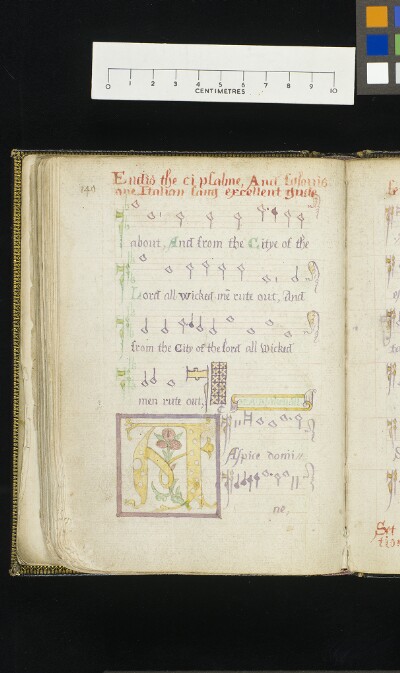 0 1 2 3 4 5 6 7 8 9 10
CENTIMETRES
Endis the ci psalme, And followis
ane Italian sang excellent gude
about, And from the Citye of the
Lord all wicked mē rute out, And
from the City of the lord all Wicked
men rute out,
Aspice domi
ne,
Set